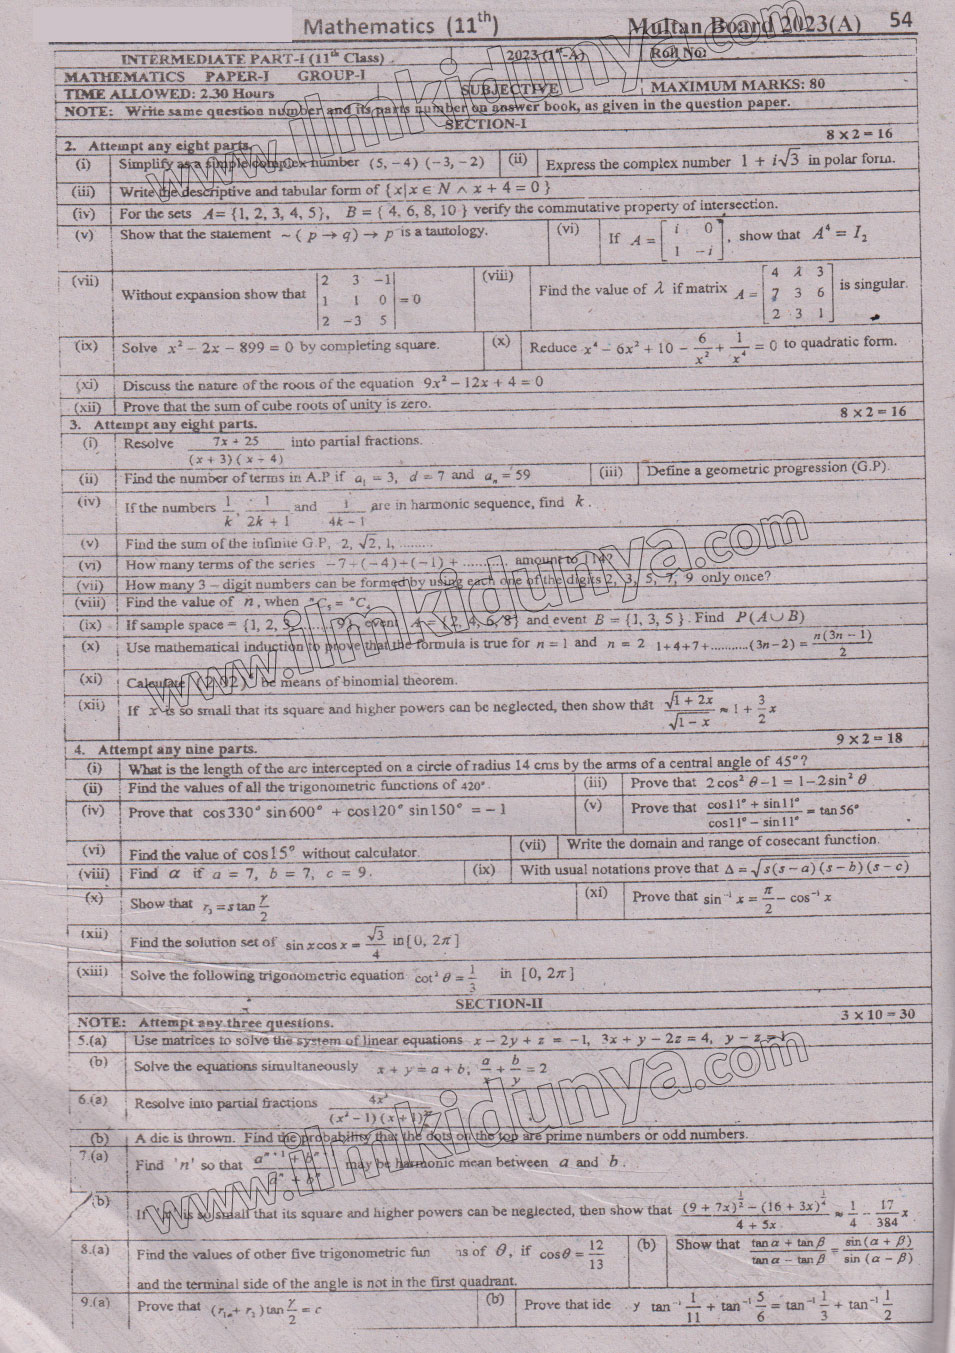 Mathematics (11th) Multan Board 2023(A) 54
INTERMEDIATE PART-I (11th Class) 2023 (1st-A) Roll No:
MATHEMATICS PAPER-I GROUP-I
TIME ALLOWED: 2.30 Hours SUBJECTIVE MAXIMUM MARKS: 80
NOTE: Write same question number and its parts number on answer book, as given in the question paper.
SECTION-I
2. Attempt any eight parts. 8 X 2 = 16
(i) Simplify as a simple complex number (5, −4) (−3, −2) (ii) Express the complex number 1 + i√3 in polar form.
(iii) Write the descriptive and tabular form of {x|x ∈ N ∧ x + 4 = 0}
(iv) For the sets A = {1, 2, 3, 4, 5}, B = {4, 6, 8, 10} verify the commutative property of intersection.
(v) Show that the statement ~ ( p → q) → p is a tautology. (vi) If A = [i 0; 1 −i], show that A⁴ = I₂
(vii) Without expansion show that |2 3 −1; 1 1 0; 2 −3 5| = 0 (viii) Find the value of λ if matrix A = [4 λ 3; 7 3 6; 2 3 1] is singular.
(ix) Solve x² − 2x − 899 = 0 by completing square. (x) Reduce x⁴ − 6x² + 10 − 6/x² + 1/x⁴ = 0 to quadratic form.
(xi) Discuss the nature of the roots of the equation 9x² − 12x + 4 = 0
(xii) Prove that the sum of cube roots of unity is zero.
3. Attempt any eight parts. 8 X 2 = 16
(i) Resolve (7x + 25)/((x + 3)(x + 4)) into partial fractions.
(ii) Find the number of terms in A.P if a₁ = 3, d = 7 and aₙ = 59 (iii) Define a geometric progression (G.P).
(iv) If the numbers 1/k, 1/(2k + 1) and 1/(4k − 1) are in harmonic sequence, find k.
(v) Find the sum of the infinite G.P, 2, √2, 1, .........
(vi) How many terms of the series −7+(−4)+(−1)+ ........... amount to 114?
(vii) How many 3 – digit numbers can be formed by using each one of the digits 2, 3, 5, 7, 9 only once?
(viii) Find the value of n, when ⁿC₅ = ⁿC₄
(ix) If sample space = {1, 2, 3, ......, 9}, event A = {2, 4, 6, 8} and event B = {1, 3, 5}. Find P(A∪B)
(x) Use mathematical induction to prove that the formula is true for n = 1 and n = 2 1+4+7+...........(3n−2) = n(3n − 1)/2
(xi) Calculate be means of binomial theorem.
(xii) If x is so small that its square and higher powers can be neglected, then show that √(1 + 2x)/√(1 − x) ≈ 1 + 3/2 x
4. Attempt any nine parts. 9 X 2 = 18
(i) What is the length of the arc intercepted on a circle of radius 14 cms by the arms of a central angle of 45°?
(ii) Find the values of all the trigonometric functions of 420° (iii) Prove that 2cos² θ − 1 = 1 − 2sin² θ
(iv) Prove that cos330° sin600° + cos120° sin150° = −1 (v) Prove that (cos11° + sin11°)/(cos11° − sin11°) = tan56°
(vi) Find the value of cos15° without calculator. (vii) Write the domain and range of cosecant function.
(viii) Find α if a = 7, b = 7, c = 9. (ix) With usual notations prove that Δ = √s(s − a)(s − b)(s − c)
(x) Show that r₃ = s tan γ/2 (xi) Prove that sin⁻¹ x = π/2 − cos⁻¹ x
(xii) Find the solution set of sin x cos x = √3/4 in [0, 2π]
(xiii) Solve the following trigonometric equation cot² θ = 1/3 in [0, 2π]
SECTION-II
NOTE: Attempt any three questions. 3 X 10 = 30
5.(a) Use matrices to solve the system of linear equations x − 2y + z = −1, 3x + y − 2z = 4, y − z = 1
(b) Solve the equations simultaneously x + y = a + b; a/x + b/y = 2
6.(a) Resolve into partial fractions 4x³/((x² − 1)(x + 1)²)
(b) A die is thrown. Find the probability that the dots on the top are prime numbers or odd numbers.
7.(a) Find 'n' so that (aⁿ⁺¹ + bⁿ⁺¹)/(aⁿ + bⁿ) may be harmonic mean between a and b.
(b) If x is so small that its square and higher powers can be neglected, then show that ((9 + 7x)^½ − (16 + 3x)^¼)/(4 + 5x) ≈ 1/4 − 17/384 x
8.(a) Find the values of other five trigonometric fun ns of θ, if cosθ = 12/13 (b) Show that (tan α + tan β)/(tan α − tan β) = sin (α + β)/sin (α − β)
and the terminal side of the angle is not in the first quadrant.
9.(a) Prove that (r₁ + r₂) tan γ/2 = c (b) Prove that ide y tan⁻¹ 1/11 + tan⁻¹ 5/6 = tan⁻¹ 1/3 + tan⁻¹ 1/2
www.ilmkidunya.com
www.ilmkidunya.com
www.ilmkidunya.com